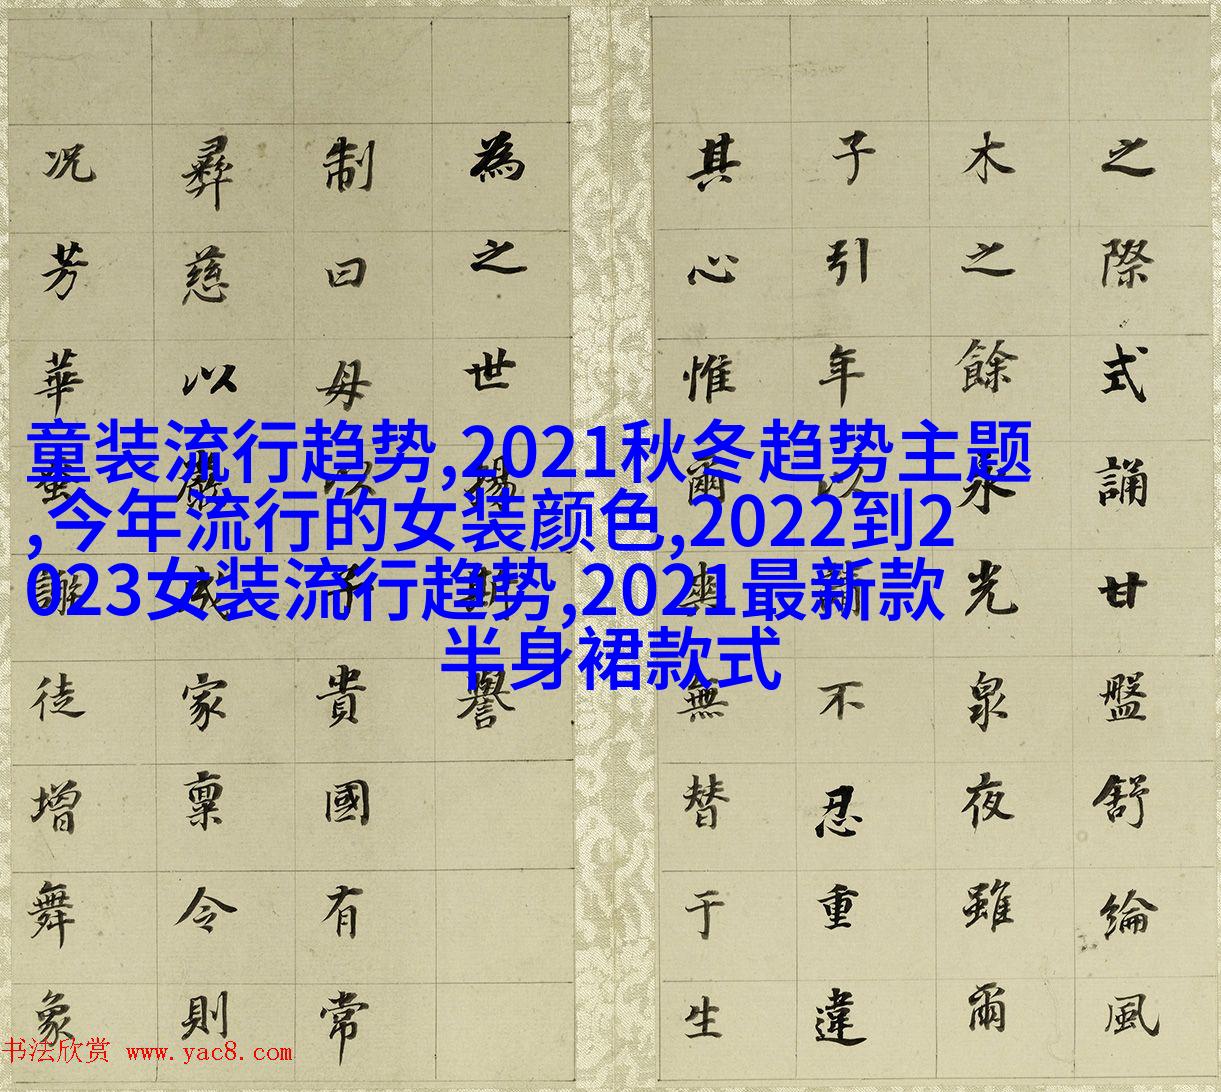 之際式誦甘盤舒綸風
木之餘承光泉夜雖爾
子引年以不忍重違
其心惟爾爽無替于生
為之世錫斯譽
制曰母以子貴國有常
彝慈以嚴成家稟令則
况芳華蚤謝徒增舞象
童装流行趋势,2021秋冬趋势主题
,今年流行的女装颜色,2022到2
023女装流行趋势,2021最新款
半身裙款式
书法欣赏 www.yac8.com